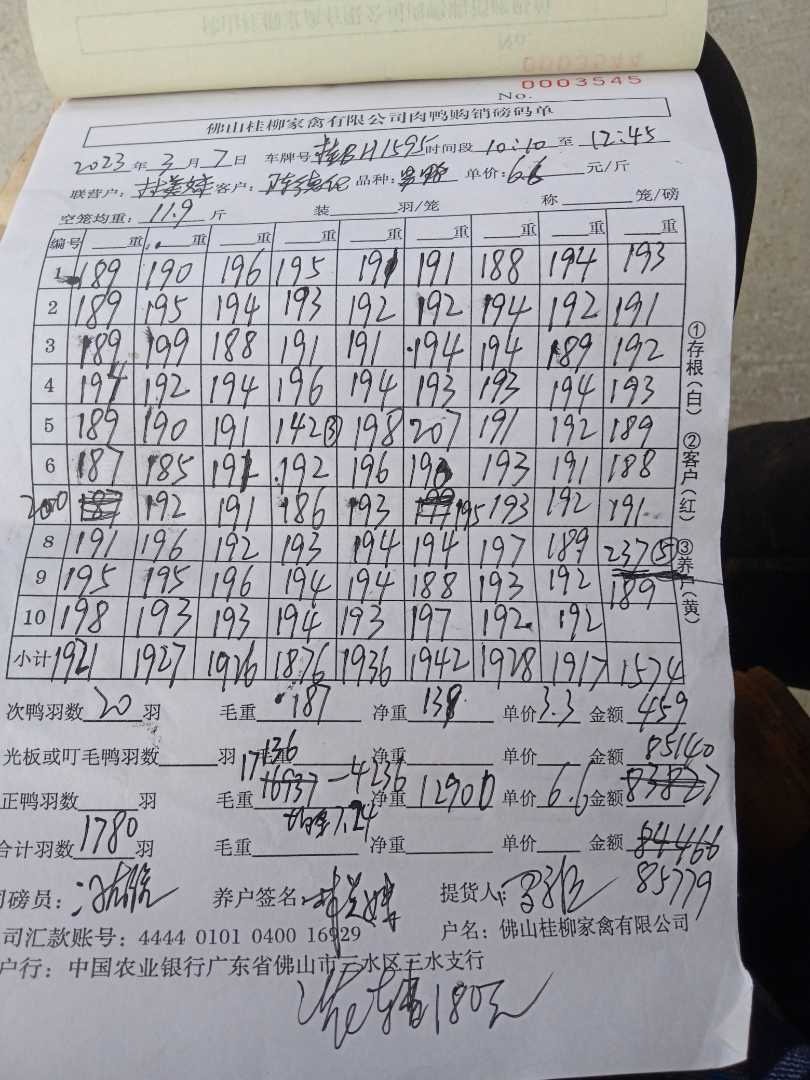 No.
0003544
0003545
No.
佛山桂柳家禽有限公司肉鸭购销磅码单
2023年3月7日 车牌号:桂BH1595 时间段 10:10 至 12:45
联营户: 客户: 品种: 单价:6.6元/斤
空笼均重:11.9斤 装羽/笼 称笼/磅
编号 重 重 重 重 重 重 重 重 重
1 189 190 196 195 191 191 188 194 193
2 189 195 194 193 192 192 194 192 191
3 189 199 188 191 191 194 194 189 192
4 194 192 194 196 194 193 193 194 193
5 189 190 191 142③ 198 207 191 192 189
6 187 185 192 192 196 193 191 188
200 192 191 186 193 195 193 192 191
8 191 196 192 193 194 194 197 189 237⑤
9 195 195 196 194 194 188 193 192 189
10 198 193 193 194 193 197 192 192
小计 1921 1927 1926 1876 1936 1942 1928 1917 1574
①存根(白) ②客户(红) ③养户(黄)
次鸭羽数20羽 毛重187 净重138 单价3.3 金额459
光板或叮毛鸭羽数羽 毛重 净重 单价 金额85140
17136
正鸭羽数羽 毛重16937-4236 净重12900 单价6.6 金额83827
均重7.24
合计羽数1780羽 毛重 净重 单价 金额84466
85779
司磅员: 养户签名: 提货人:
司汇款账号:4444 0101 0400 16929 户名:佛山桂柳家禽有限公司
户行:中国农业银行广东省佛山市三水区三水支行
180元